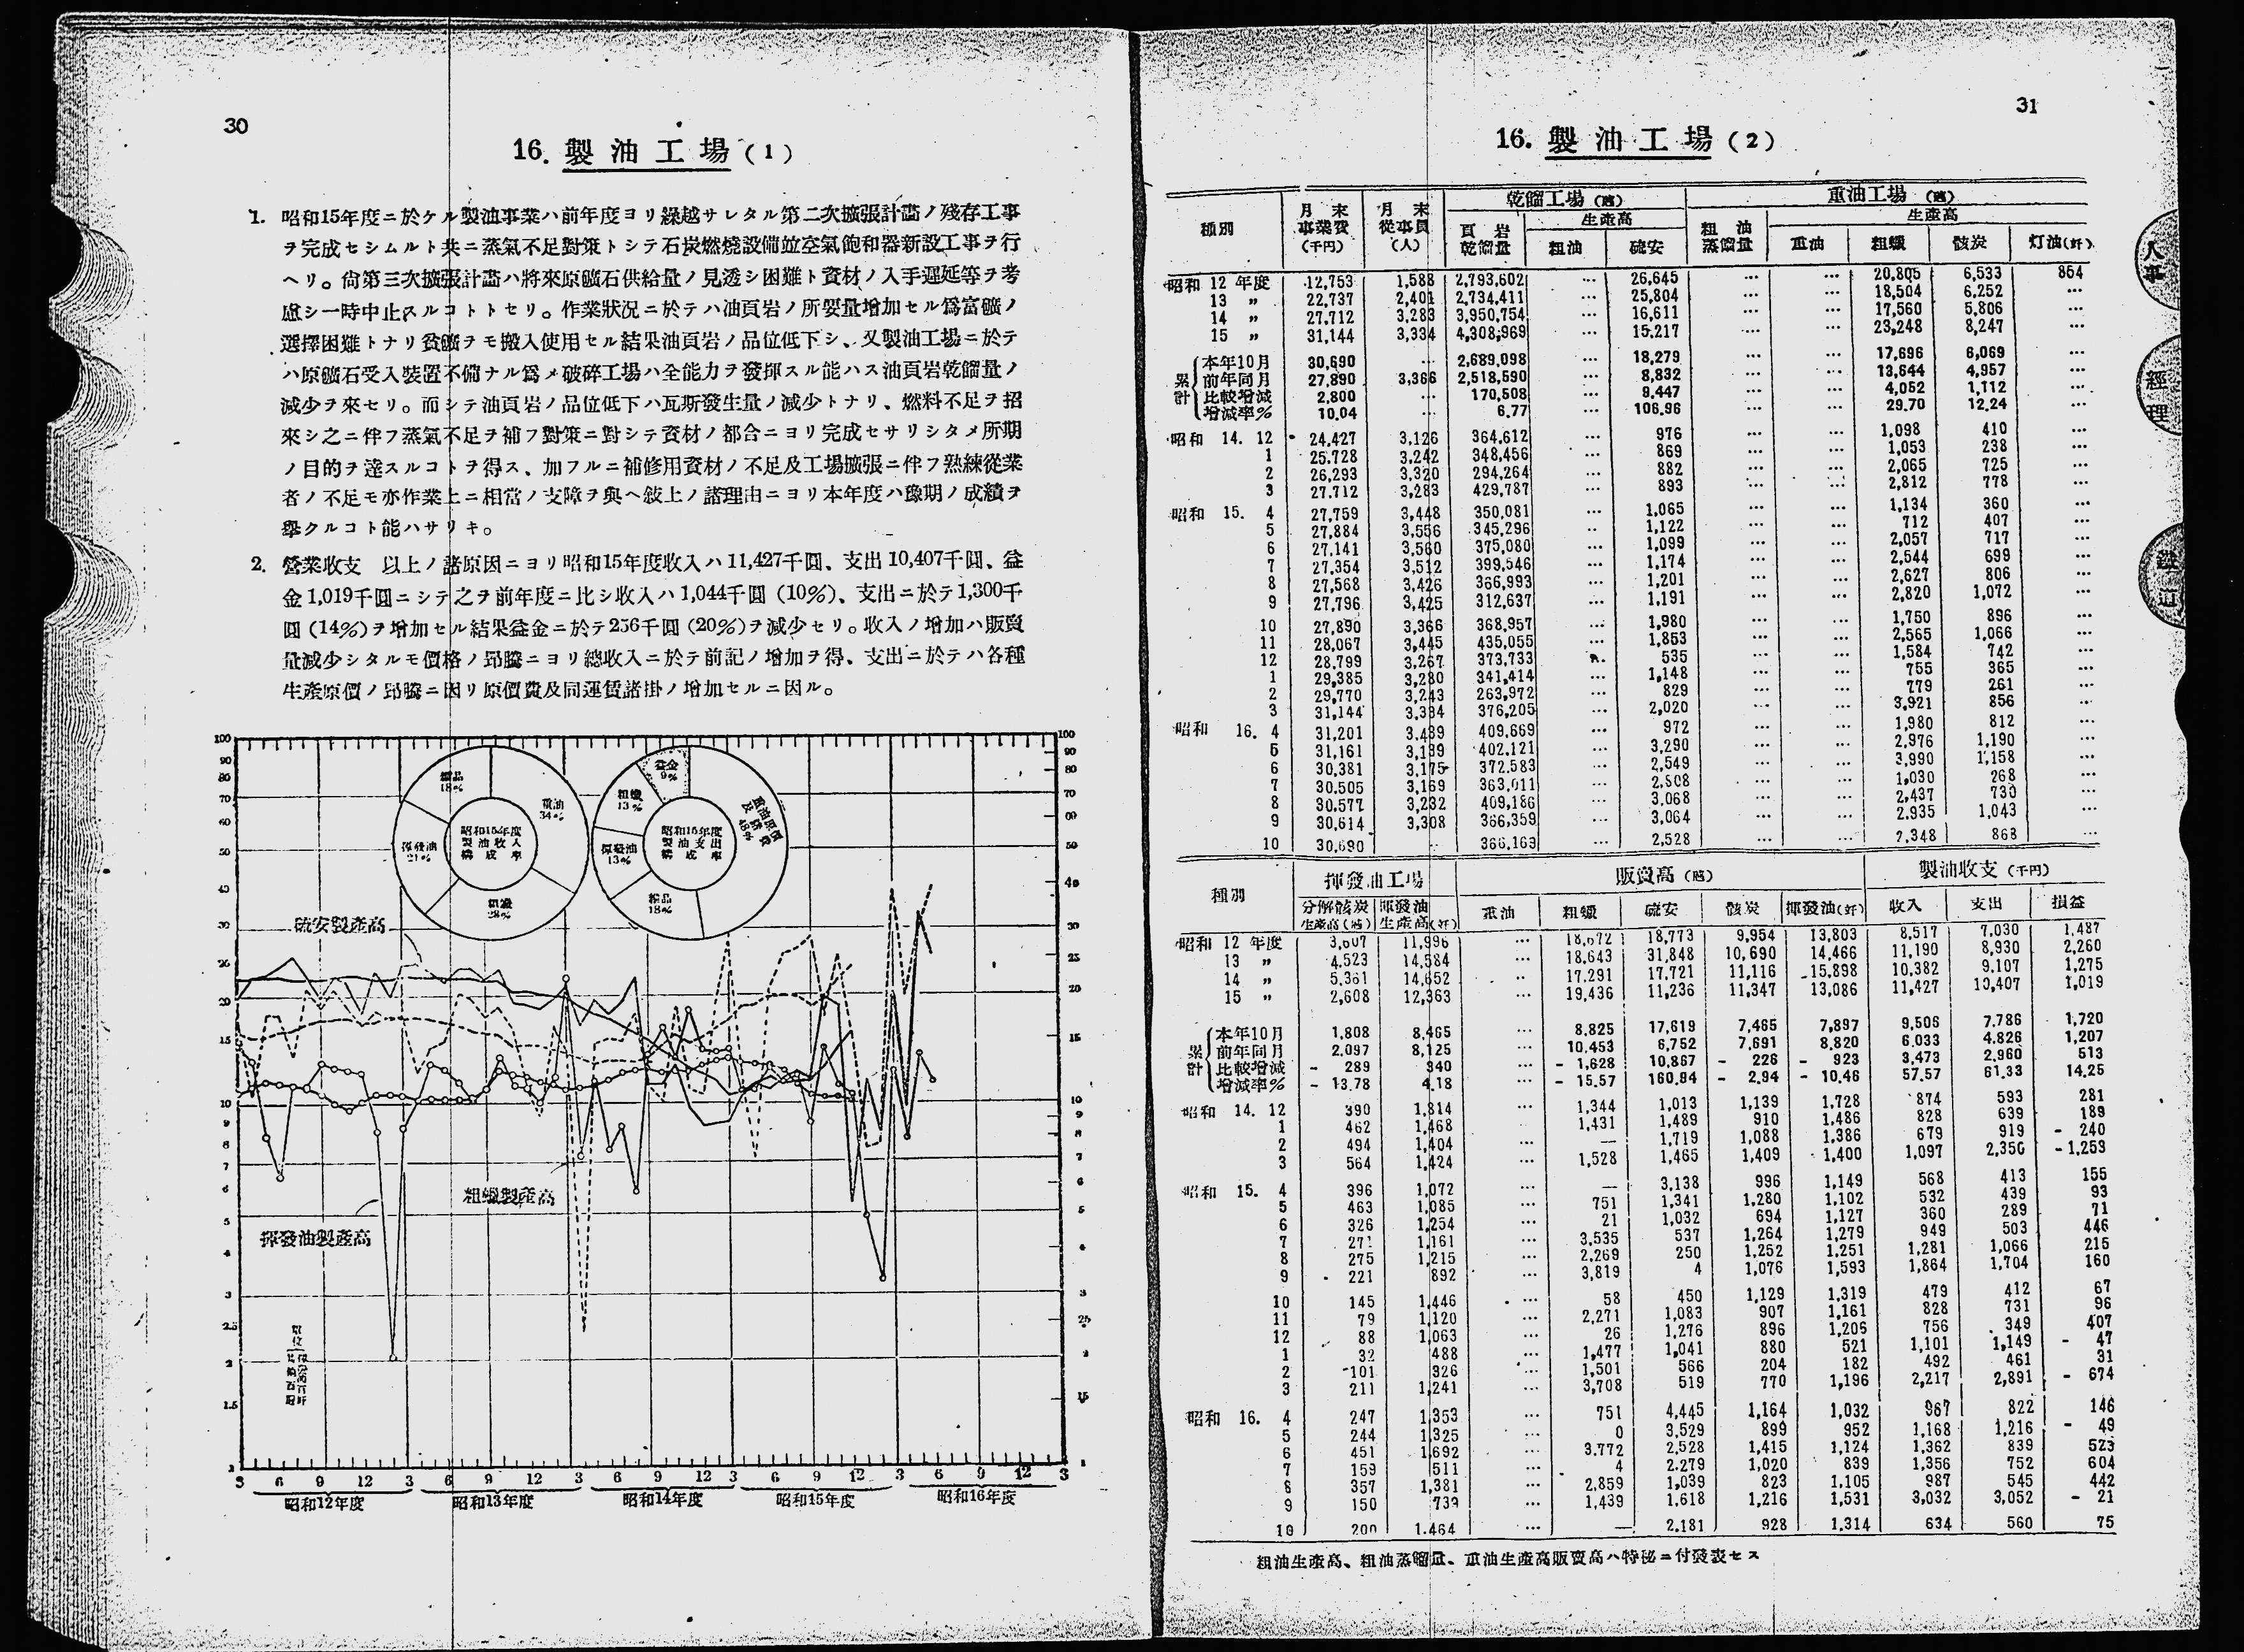 30
16. 製油工場(1)
1. 昭和15年度ニ於ケル製油事業ハ前年度ヨリ繰越サレタル第二次擴張計畵ノ殘存工事
ヲ完成セシムルト共ニ蒸氣不足對策トシテ石炭燃燒設備竝空氣飽和器新設工事ヲ行
ヘリ。尙第三次擴張計畵ハ將來原礦石供給量ノ見透シ困難ト資材ノ入手遲延等ヲ考
慮シ一時中止スルコトトセリ。作業狀況ニ於テハ油頁岩ノ所要量增加セル爲富礦ノ
選擇困難トナリ貧礦ヲモ搬入使用セル結果油頁岩ノ品位低下シ、又製油工場ニ於テ
ハ原礦石受入裝置不備ナル爲メ破碎工場ハ全能力ヲ發揮スル能ハス油頁岩乾餾量ノ
減少ヲ來セリ。而シテ油頁岩ノ品位低下ハ瓦斯發生量ノ減少トナリ、燃料不足ヲ招
來シ之ニ伴フ蒸氣不足ヲ補フ對策ニ對シテ資材ノ都合ニヨリ完成セサリシタメ所期
ノ目的ヲ達スルコトヲ得ス、加フルニ補修用資材ノ不足及工場擴張ニ伴フ熟練從業
者ノ不足モ亦作業上ニ相當ノ支障ヲ與ヘ敍上ノ諸理由ニヨリ本年度ハ豫期ノ成績ヲ
擧クルコト能ハサリキ。
2. 營業收支 以上ノ諸原因ニヨリ昭和15年度收入ハ11,427千圓、支出10,407千圓、益
金1,019千圓ニシテ之ヲ前年度ニ比シ收入ハ1,044千圓(10%)、支出ニ於テ1,300千
圓(14%)ヲ增加セル結果益金ニ於テ256千圓(20%)ヲ減少セリ。收入ノ增加ハ販賣
量減少シタルモ價格ノ昂騰ニヨリ總收入ニ於テ前記ノ增加ヲ得、支出ニ於テハ各種
生產原價ノ昂騰ニ因リ原價費及同運賃諸掛ノ增加セルニ因ル。
昭和15年度
製油收入
構成率
重油
34%
粗蠟
28%
揮發油
21%
18%
昭和15年度
製油支出
構成率
益金
9%
粗蠟
13%
揮發油
13%
18%
48%
硫安製產高
粗蠟製產高
揮發油製產高
3 6 9 12 3 6 9 12 3 6 9 12 3 6 9 12 3 6 9 12 3
昭和12年度 昭和13年度 昭和14年度 昭和15年度 昭和16年度
31
16. 製油工場(2)
種別 月末事業費(千円) 月末從事員(人) 乾餾工場(瓲) 重油工場(瓲)
頁岩乾餾量 生產高 粗油蒸餾量 生產高
粗油 硫安 重油 粗蠟 骸炭 灯油(竏)
昭和 12 年度 12,753 1,588 2,793,602 … 26,645 … … 20,805 6,533 864
13 〃 22,737 2,401 2,734,411 … 25,804 … … 18,504 6,252 …
14 〃 27,712 3,283 3,950,754 … 16,611 … … 17,560 5,806 …
15 〃 31,144 3,334 4,308,969 … 15,217 … … 23,248 8,247 …
累計 本年10月 30,690 … 2,689,098 … 18,279 … … 17,696 6,069 …
前年同月 27,890 3,366 2,518,590 … 8,832 … … 13,644 4,957 …
比較增減 2,800 … 170,508 … 9,447 … … 4,052 1,112 …
增減率% 10.04 … 6.77 … 106.96 … … 29.70 12.24 …
昭和 14. 12 24,427 3,126 364,612 … 976 … … 1,098 410 …
1 25,728 3,242 348,456 … 869 … … 1,053 238 …
2 26,293 3,320 294,264 … 882 … … 2,065 725 …
3 27,712 3,283 429,787 … 893 … … 2,812 778 …
昭和 15. 4 27,759 3,448 350,081 … 1,065 … … 1,134 360 …
5 27,884 3,556 345,296 … 1,122 … … 712 407 …
6 27,141 3,560 375,080 … 1,099 … … 2,057 717 …
7 27,354 3,512 399,546 … 1,174 … … 2,544 699 …
8 27,568 3,426 366,993 … 1,201 … … 2,627 806 …
9 27,796 3,425 312,637 … 1,191 … … 2,820 1,072 …
10 27,890 3,366 368,957 … 1,980 … … 1,750 896 …
11 28,067 3,445 435,055 … 1,853 … … 2,565 1,066 …
12 28,799 3,267 373,733 … 535 … … 1,584 742 …
1 29,385 3,280 341,414 … 1,148 … … 755 365 …
2 29,770 3,243 263,972 … 829 … … 779 261 …
3 31,144 3,334 376,205 … 2,020 … … 3,921 856 …
昭和 16. 4 31,201 3,439 409,669 … 972 … … 1,980 812 …
5 31,161 3,139 402,121 … 3,290 … … 2,976 1,190 …
6 30,381 3,175 372,583 … 2,549 … … 3,990 1,158 …
7 30,505 3,169 363,011 … 2,808 … … 1,030 268 …
8 30,577 3,232 409,186 … 3,068 … … 2,437 730 …
9 30,614 3,308 366,359 … 3,064 … … 2,935 1,043 …
10 30,690 … 366,169 … 2,528 … … 2,348 868 …
種別 揮發油工場 販賣高(瓲) 製油收支(千円)
分解骸炭生產高(瓲) 揮發油生產高(竏) 重油 粗蠟 硫安 骸炭 揮發油(竏) 收入 支出 損益
昭和 12 年度 3,607 11,996 … 18,672 18,773 9,954 13,803 8,517 7,030 1,487
13 〃 4,523 14,584 … 18,643 31,848 10,690 14,466 11,190 8,930 2,260
14 〃 5,361 14,652 … 17,291 17,721 11,116 15,898 10,382 9,107 1,275
15 〃 2,608 12,363 … 19,436 11,236 11,347 13,086 11,427 10,407 1,019
累計 本年10月 1,808 8,465 … 8,825 17,619 7,465 7,897 9,506 7,786 1,720
前年同月 2,097 8,125 … 10,453 6,752 7,691 8,820 6,033 4,826 1,207
比較增減 - 289 340 … - 1,628 10,867 - 226 - 923 3,473 2,960 513
增減率% - 13.78 4.18 … - 15.57 160.94 - 2.94 - 10.46 57.57 61.33 14.25
昭和 14. 12 390 1,814 … 1,344 1,013 1,139 1,728 874 593 281
1 462 1,468 1,431 1,489 910 1,486 828 639 189
2 494 1,404 … — 1,719 1,088 1,386 679 919 - 240
3 564 1,424 … 1,528 1,465 1,409 1,400 1,097 2,350 - 1,253
昭和 15. 4 396 1,072 … — 3,138 996 1,149 568 413 155
5 463 1,085 … 751 1,341 1,280 1,102 532 439 93
6 326 1,254 … 21 1,032 694 1,127 360 289 71
7 271 1,161 … 3,535 537 1,264 1,279 949 503 446
8 275 1,215 … 2,269 250 1,252 1,251 1,281 1,066 215
9 221 892 … 3,819 4 1,076 1,593 1,864 1,704 160
10 145 1,446 … 58 450 1,129 1,319 479 412 67
11 79 1,120 … 2,271 1,083 907 1,161 828 731 96
12 88 1,063 … 26 1,276 896 1,206 756 349 407
1 32 488 … 1,477 1,041 880 521 1,101 1,149 - 47
2 101 326 … 1,501 566 204 182 492 461 31
3 211 1,241 … 3,708 519 770 1,196 2,217 2,891 - 674
昭和 16. 4 247 1,353 … 751 4,445 1,164 1,032 967 822 146
5 244 1,325 … 0 3,529 899 952 1,168 1,216 - 49
6 451 1,692 … 3,772 2,528 1,415 1,124 1,362 839 523
7 159 511 … 4 2,279 1,020 839 1,356 752 604
8 357 1,381 … 2,859 1,039 823 1,105 987 545 442
9 150 739 … 1,439 1,618 1,216 1,531 3,032 3,052 - 21
10 200 1,464 … — 2,181 928 1,314 634 560 75
粗油生產高、粗油蒸餾量、重油生產高販賣高ハ特秘ニ付發表セス
人事
經理